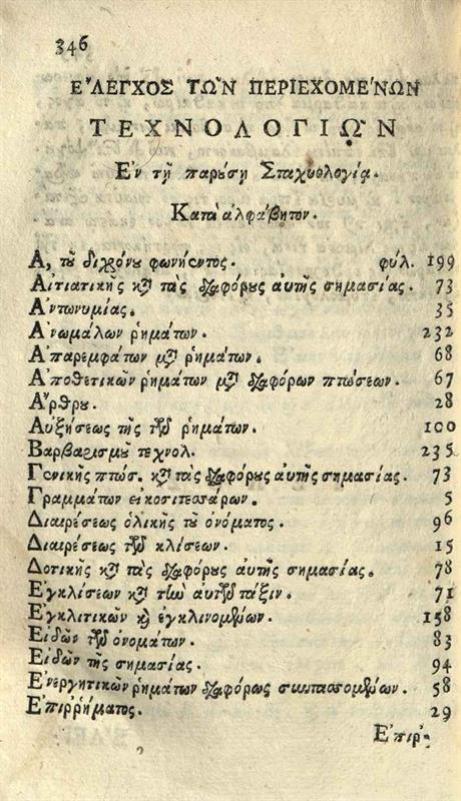 346
ΕʼΛΕΓΧΟΣ ΤΩ͂Ν ΠΕΡΙΕΧΟΜΕʹΝΩΝ
ΤΕΧΝΟΛΟΓΙΩ͂Ν
Ἐν τῇ παρούσῃ Σταχυολογίᾳ.
Κατὰ ἀλφάβητον.
Α, τοῦ διχρόνου φωνήεντος. φύλ. 199
Αἰτιατικῆς καὶ τὰς διαφόρους αὐτῆς σημασίας. 73
Ἀντωνυμίας. 35
Ἀνωμάλων ῥημάτων. 232
Ἀπαρεμφάτων μετὰ ῥημάτων. 68
Ἀποθετικῶν ῥημάτων μετὰ διαφόρων πτώσεων. 67
Ἄρθρου. 28
Αὐξήσεως τῆς τῶν ῥημάτων. 100
Βαρβαρισμοῦ τεχνολ. 235
Γενικῆς πτώσ. καὶ τὰς διαφόρους αὐτῆς σημασίας. 73
Γραμμάτων εἰκοσιτεσσάρων. 5
Διαιρέσεως ὁλικῆς τοῦ ὀνόματος. 96
Διαιρέσεως τῶν κλίσεων. 15
Δοτικῆς καὶ τὰς διαφόρους αὐτῆς σημασίας. 78
Ἐγκλίσεων κατὰ τὴν αὐτῶν τάξιν. 71
Ἐγκλιτικῶν καὶ ἐγκλινομένων. 158
Εἰδῶν τῶν ὀνομάτων. 83
Εἰδῶν τῆς σημασίας. 94
Ἐνεργητικῶν ῥημάτων διαφόρως συντασσομένων. 58
Ἐπιρρήματος. 29
Ἐπιῤ